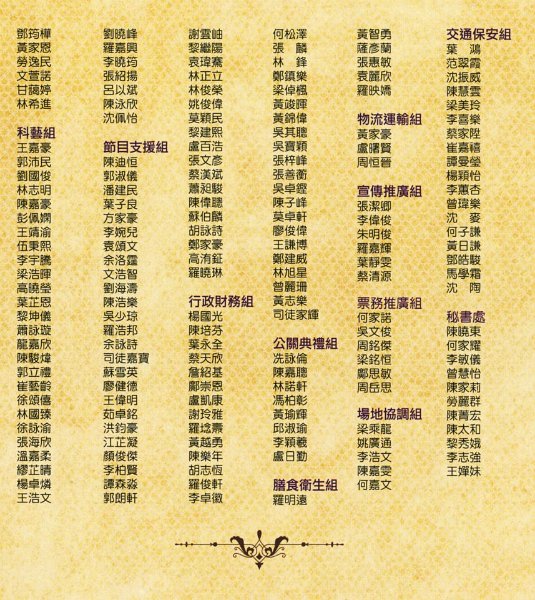 鄧筠樺
黃家恩
勞逸民
文萱諾
甘藹婷
林希進
科藝組
王嘉豪
郭沛民
劉國俊
林志明
陳嘉豪
彭佩嫻
王靖渝
伍秉熙
李宇騰
梁浩暉
高曉瑩
葉芷恩
黎坤儀
蕭詠璇
龍嘉欣
陳駿煒
郭立禮
崔藝齡
徐頌僖
林國臻
徐詠渝
張海欣
溫嘉柔
繆芷晴
楊卓燐
王浩文
劉曉峰
羅嘉興
李曉筠
張紹揚
呂以斌
陳泳欣
沈佩怡
節目支援組
陳迪恒
郭淑儀
潘建民
葉子良
方家豪
李婉兒
袁頌文
余洛霆
文浩智
劉海濤
陳浩樂
吳少琼
羅浩邦
余詠詩
司徒嘉寶
蘇雪英
廖健德
王偉明
茹卓銘
洪鈞豪
江芷凝
顏俊傑
李柏賢
譚森淼
郭朗軒
謝雲岫
黎繼陽
袁瑋騫
林正立
林俊榮
姚俊偉
莫穎民
黎建熙
盧百浩
張文彥
蔡漢斌
蕭昶駿
陳偉聰
蘇伯麟
胡詠詩
鄭家豪
高洧鉦
羅曉琳
行政財務組
楊國光
陳培芬
葉永全
蔡天欣
詹紹基
鄺崇恩
盧凱康
謝玲雅
羅埝燾
黃越勇
陳樂年
胡志恆
羅俊軒
李卓徽
何松澤
張　麟
林　鋒
鄭鎮樂
梁倬楓
黃竣暉
黃錦偉
吳其聰
吳寶穎
張梓峰
張善衡
吳卓鏗
陳子峰
莫卓軒
廖俊偉
王謙博
鄭建威
林旭星
曾麗珊
黃志樂
司徒家輝
公關典禮組
冼詠倫
陳嘉聰
林諾軒
馮柏彰
黃瑜輝
邱淑瑜
李穎羲
盧日勤
膳食衛生組
羅明遠
黃智勇
薩彥蘭
張惠敏
袁麗欣
羅映嬌
物流運輸組
黃家豪
盧曙賢
周恒晉
宣傳推廣組
張潔卿
李偉俊
朱明俊
羅嘉輝
葉靜雯
蔡清源
票務推廣組
何家諾
吳文俊
周銘傑
梁銘恒
鄭思敏
周岳思
場地協調組
梁乘龍
姚廣通
李浩文
陳嘉雯
何嘉文
交通保安組
葉　鴻
范翠霞
沈振威
陳慧雲
梁美玲
李喜樂
蔡家陞
崔嘉禧
譚曼瑩
楊穎怡
李蕙杏
曾瑋樂
沈　麥
何子謙
黃日謙
鄧皓駿
馬學霜
沈　陶
秘書處
陳曉東
何家耀
李敏儀
曾慧怡
陳家莉
勞麗群
陳菁宏
陳太和
黎秀娥
李志強
王嬋妹